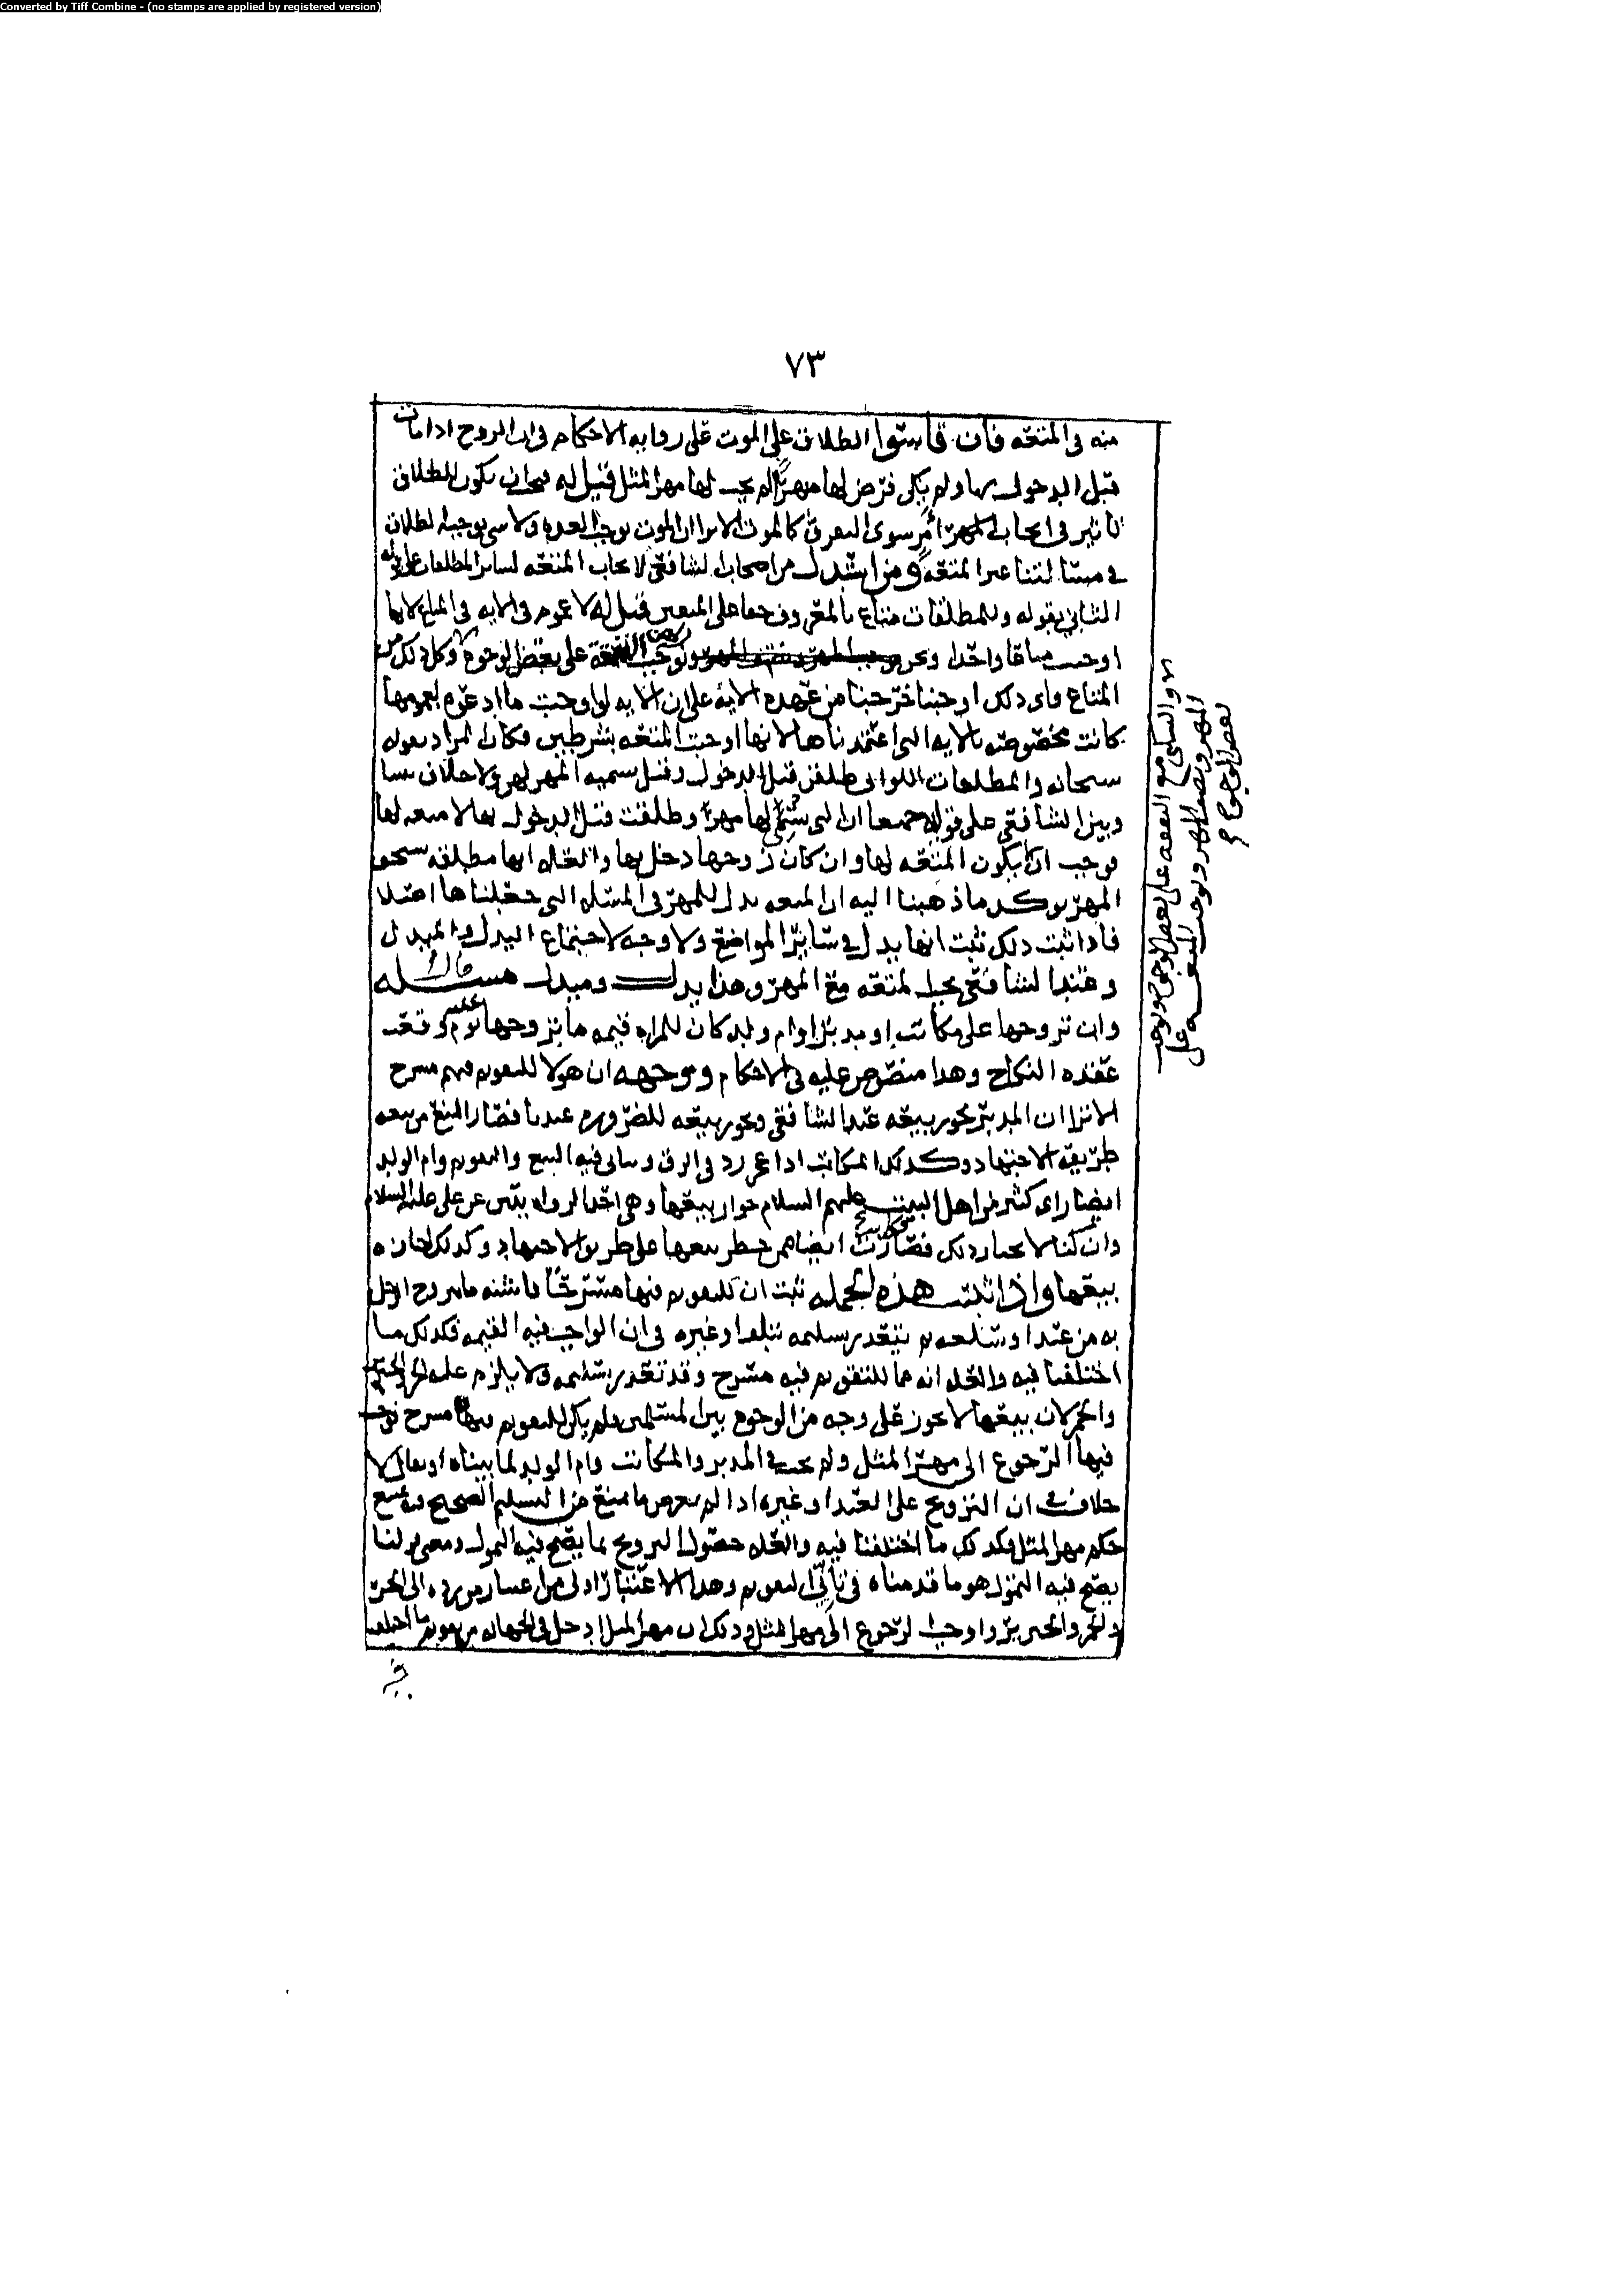 Converted by Tiff Combine - (no stamps are applied by registered version)
٧٣
منه في المتعه فان قاسوا الطلاق على الموت على روايه الاحكام في ان الزوج اذا مات
قبل الدخول بها ولم يكن فرض لها مهرا لم يجب لها مهر المثل قيل له يكون للطلاق
تاثير في ايجاب المهر سوى كالموت الا ترا ان الموت يوجب العده ولا شي يوجبه الطلاق
في مسالتنا غير المتعه ومن استدل من اصحاب الشافعي لايجاب المتعه لسائر المطلقات على قوله
الثاني بقوله وللمطلقات متاع بالمعروف حقا على المتقين قيل له لا عموم في الايه في المتاع لانها
اوجبت متاعا واحدا ونحن نوجب على بعض الوجوه وكل ذلك من
المتاع فاي ذلك اوجبنا خرجنا من عهده الايه على ان الايه لو اوجبت ما ادعوه بعمومها
كانت مخصوصه بالايه التي اعتمدناها لانها اوجبت المتعه بشرطين فكان المراد بقوله
سبحانه والمطلقات اللواتي طلقن قبل الدخول وقبل تسميه المهر لهن ولا خلاف بيننا
وبين الشافعي على قوليه جميعا ان التي سمي لها مهرا وطلقت قبل الدخول بها لا متعه لها
فوجب ان لا يكون المتعه لها وان كان زوجها دخل بها والعله انها مطلقه تستحق
المهر يوكد ما ذهبنا اليه ان المتعه بدل للمهر في المسئله التي جعلناها اصلا
فاذا ثبت ذلك ثبت انها بدل في سائر المواضع ولا وجه لاجتماع البدل والمبدل
وعند الشافعي يجب المتعه مع المهر وهذا بدل ومبدل مسئله قال
وان تزوجها على مكاتب او مدبر او ام ولد كان للمراه قيمه ما تزوجها عليه يوم وقعت
عقده النكاح وهذا منصوص عليه في الاحكام ووجهه ان هولا للتقويم فيهم مسرح
الا ترا ان المدبر يجوز بيعه عند الشافعي ويجوز بيعه للضروره عندنا فصار المنع من بيعه
طريقه الاجتهاد وكذلك المكاتب اذا عجز رد في الرق وتاتى فيه البيع والتقويم وام الولد
ايضا راى كثير من اهل البيت عليهم السلام جواز بيعها وهي احد الروايتين عن علي عليه السلام
وان كنا لا نختار ذلك فصارت ايضا حظر بيعها على طريق الاجتهاد وكذلك اجازه
بيعها واذا ثبتت هذه الجمله ثبت ان للتقويم فيها مسرحا فاشبه ما تزوج الرجل
به من عبد او سلعه ثم تعذر تسليمه بتلف او غيره في ان الواجب فيه القيمه فكذلك ما
اختلفنا فيه والعله انه مما للتقويم فيه مسرح وقد تعذر تسليمه ولا يلزم عليه الحر والخنزير
والخمر لان بيعها لا يجوز على وجه من الوجوه بين المسلمين ولم يكن للتقويم فيها مسرح فوجب
فيها الرجوع الى مهر المثل ولم يجب في المدبر والمكاتب وام الولد لما بيناه او يقال لا
خلاف في ان التزويج على العبد او غيره اذا لم يعرض ما يمنع من التسليم الصحيح وقع يمنع
حكم مهر المثل فكذلك ما اختلفنا فيه والعله حصول التزويج بما يصح فيه التمول ومعنى قولنا
يصح فيه التمول هو ما قدمناه في تاتي التقويم وهذا الاعتبار اولى من اعتبار من رده الى الحر
والخمر والخنزير واوجب الرجوع الى مهر المثل وذلك ان مهر المثل ادخل في الجهاله من تقويم ما اختلفنا
والتسليم مع النفقه على بعض الوجوه ونوجب
المهر ونصف المهر ونوجب المتعه على
بعض الوجوه